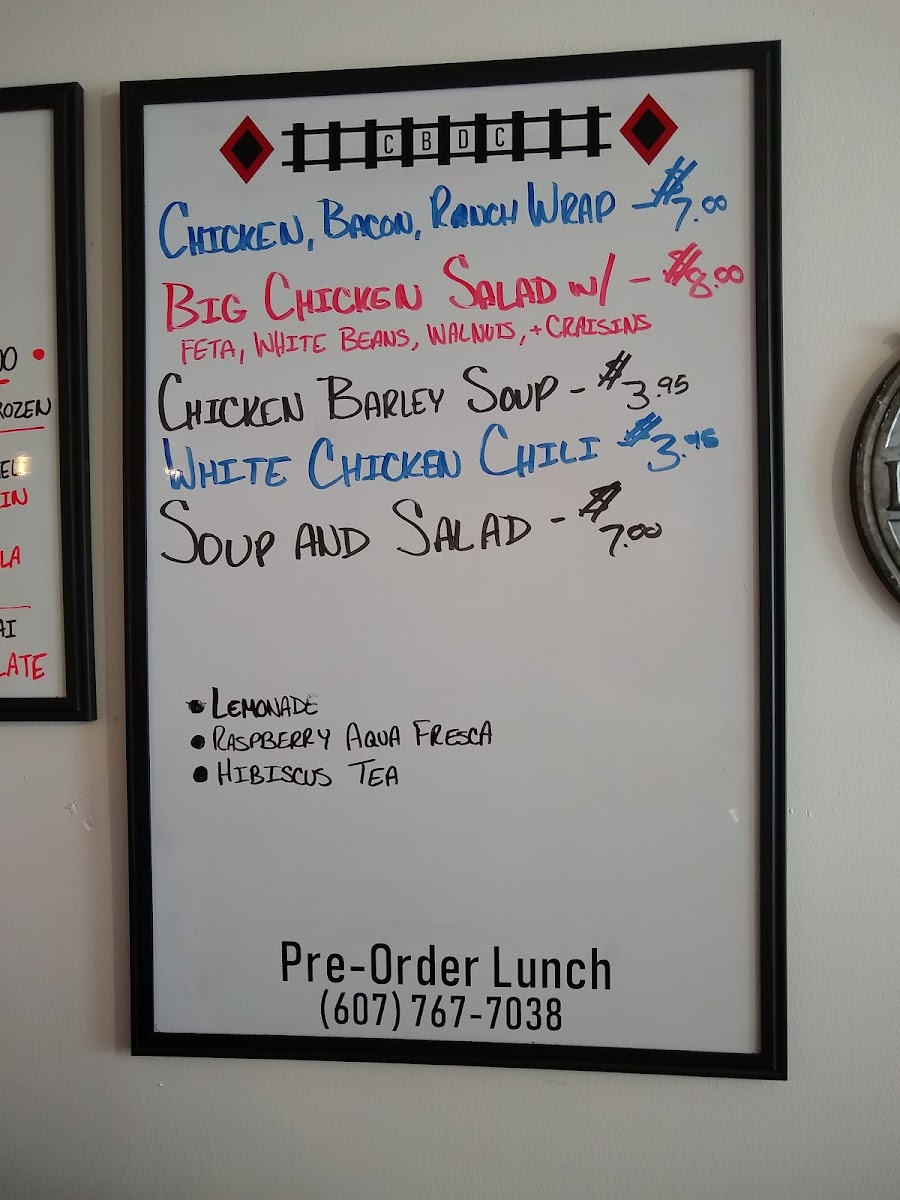 CBDC
CHICKEN, BACON, RANCH WRAP - $7.00
BIG CHICKEN SALAD W/ - $8.00
FETA, WHITE BEANS, WALNUTS, + CRAISINS
CHICKEN BARLEY SOUP - $3.95
WHITE CHICKEN CHILI $3.95
SOUP AND SALAD - $7.00
• LEMONADE
• RASPBERRY AQUA FRESCA
• HIBISCUS TEA
Pre-Order Lunch
(607) 767-7038
ROZEN
IN
LA
AI
LATE